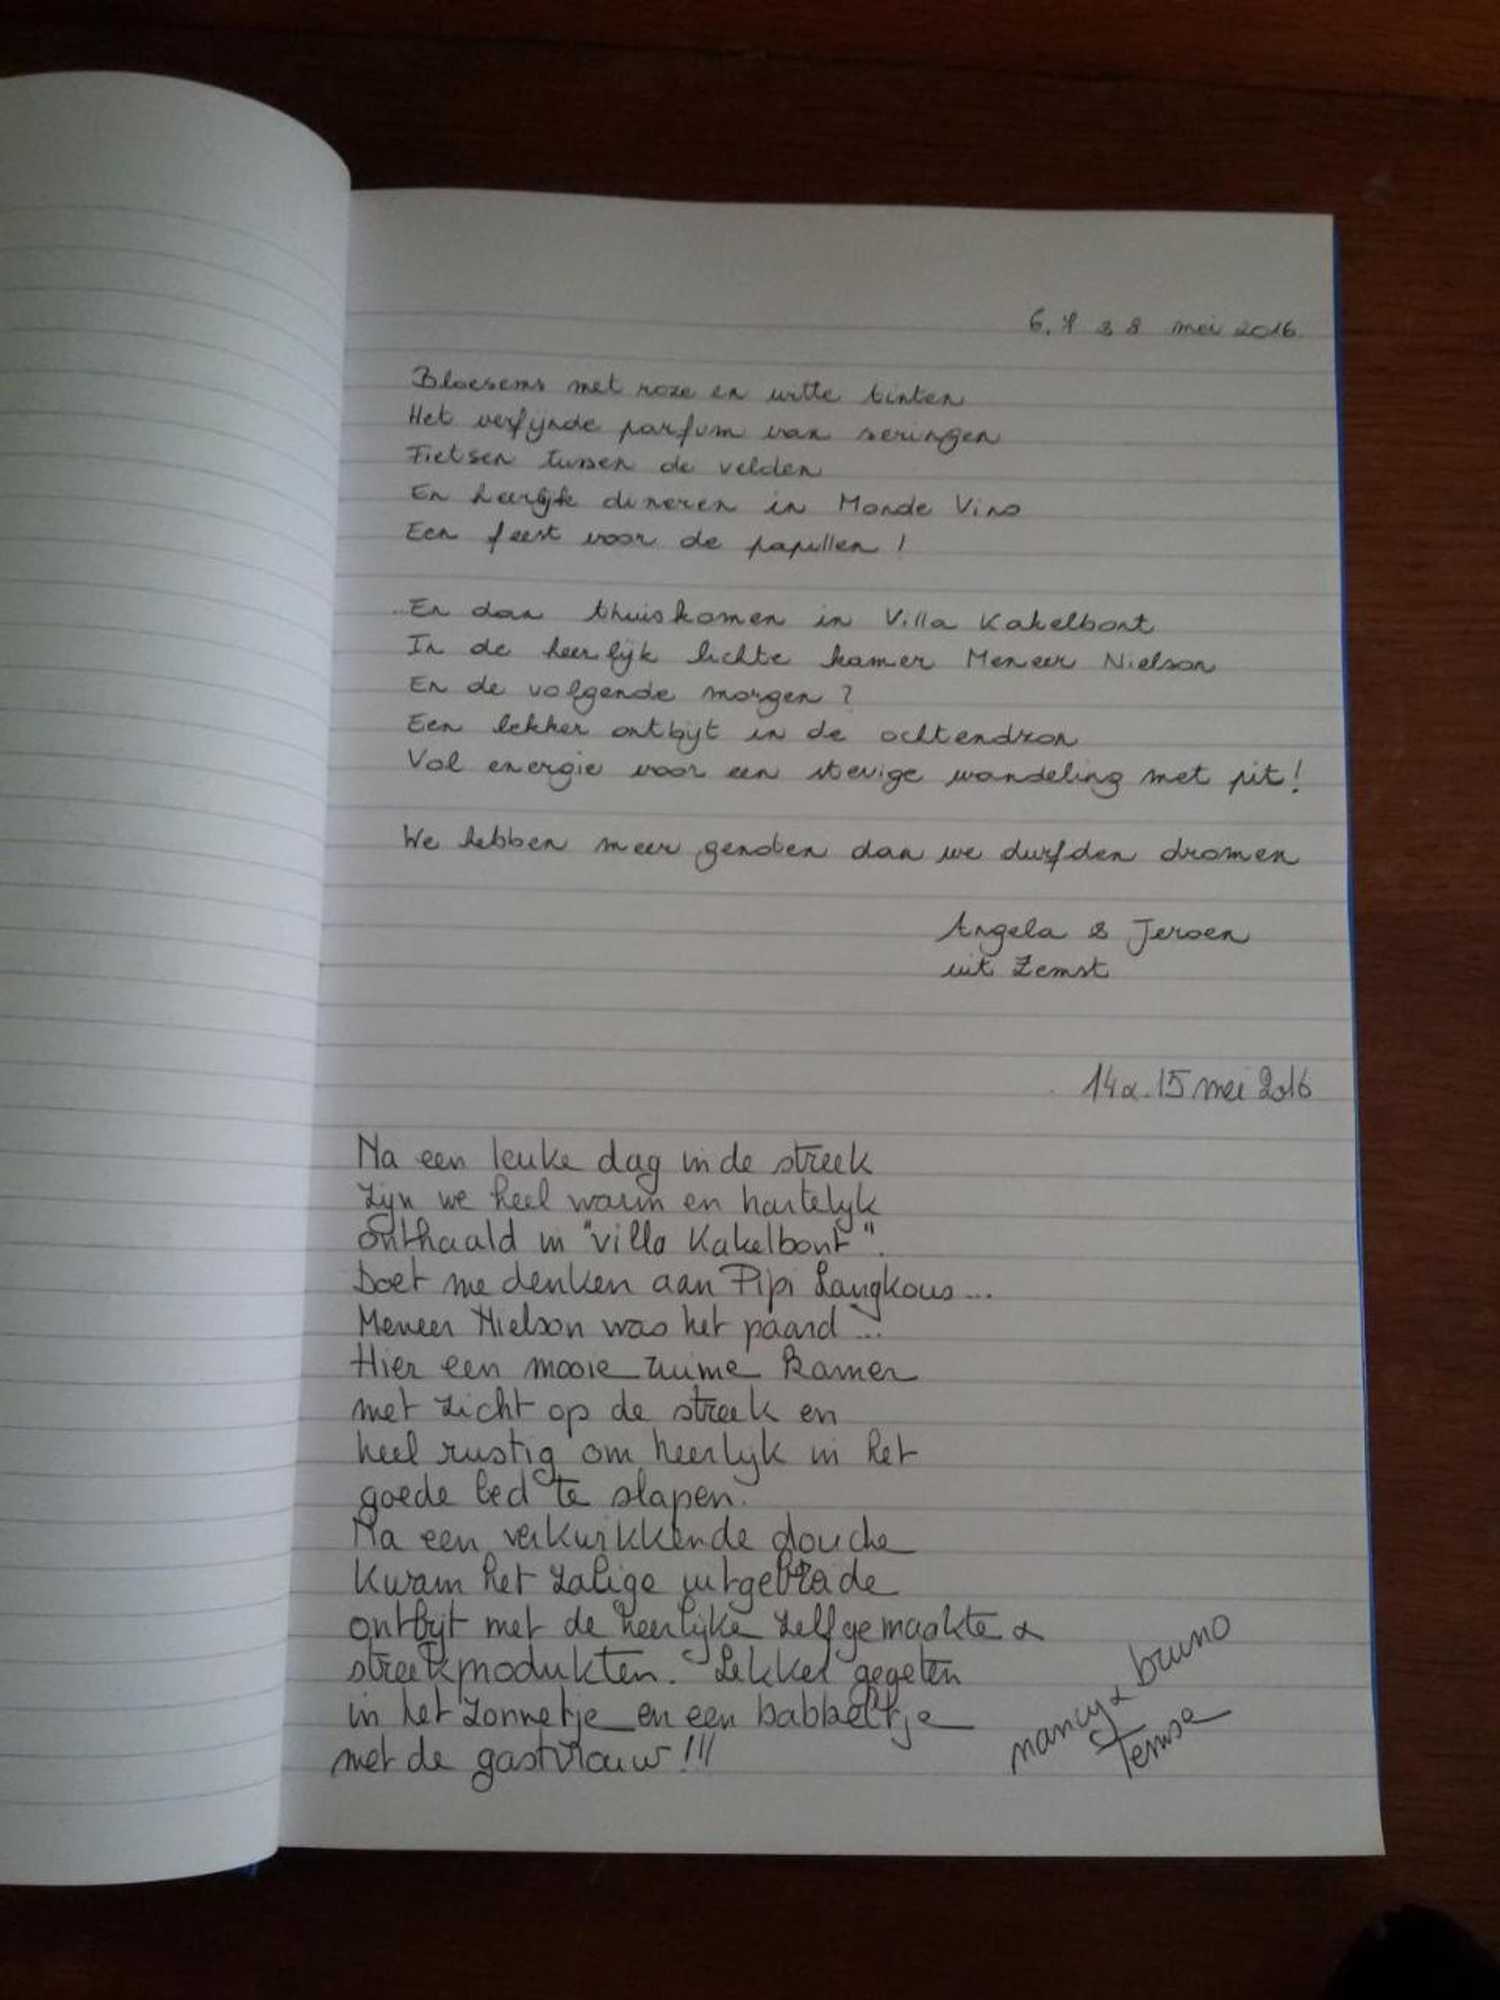 6, 7 & 8 mei 2016
Bloesems met roze en witte tinten
Het verfijnde parfum van seringen
Fietsen tussen de velden
En heerlijk dineren in Monde Vino
Een feest voor de papillen !
En dan thuiskomen in Villa Kakelbont
In de heerlijk lichte kamer Meneer Nielson
En de volgende morgen ?
Een lekker ontbijt in de ochtendzon
Vol energie voor een stevige wandeling met pit !
We hebben meer genoten dan we durfden dromen
Angela & Jeroen
uit Zemst
14 & 15 mei 2016
Na een leuke dag in de streek
zijn we heel warm en hartelijk
onthaald in "villa Kakelbont".
Doet me denken aan Pipi Langkous...
Meneer Nielson was het paard ...
Hier een mooie ruime kamer
met zicht op de streek en
heel rustig om heerlijk in het
goede bed te slapen.
Na een verkwikkende douche
kwam het zalige uitgebreide
ontbijt met de heerlijke zelfgemaakte &
streekprodukten. Lekker gegeten
in het zonnetje en een babbeltje
met de gastvrouw !!!
nancy & bruno
Temse